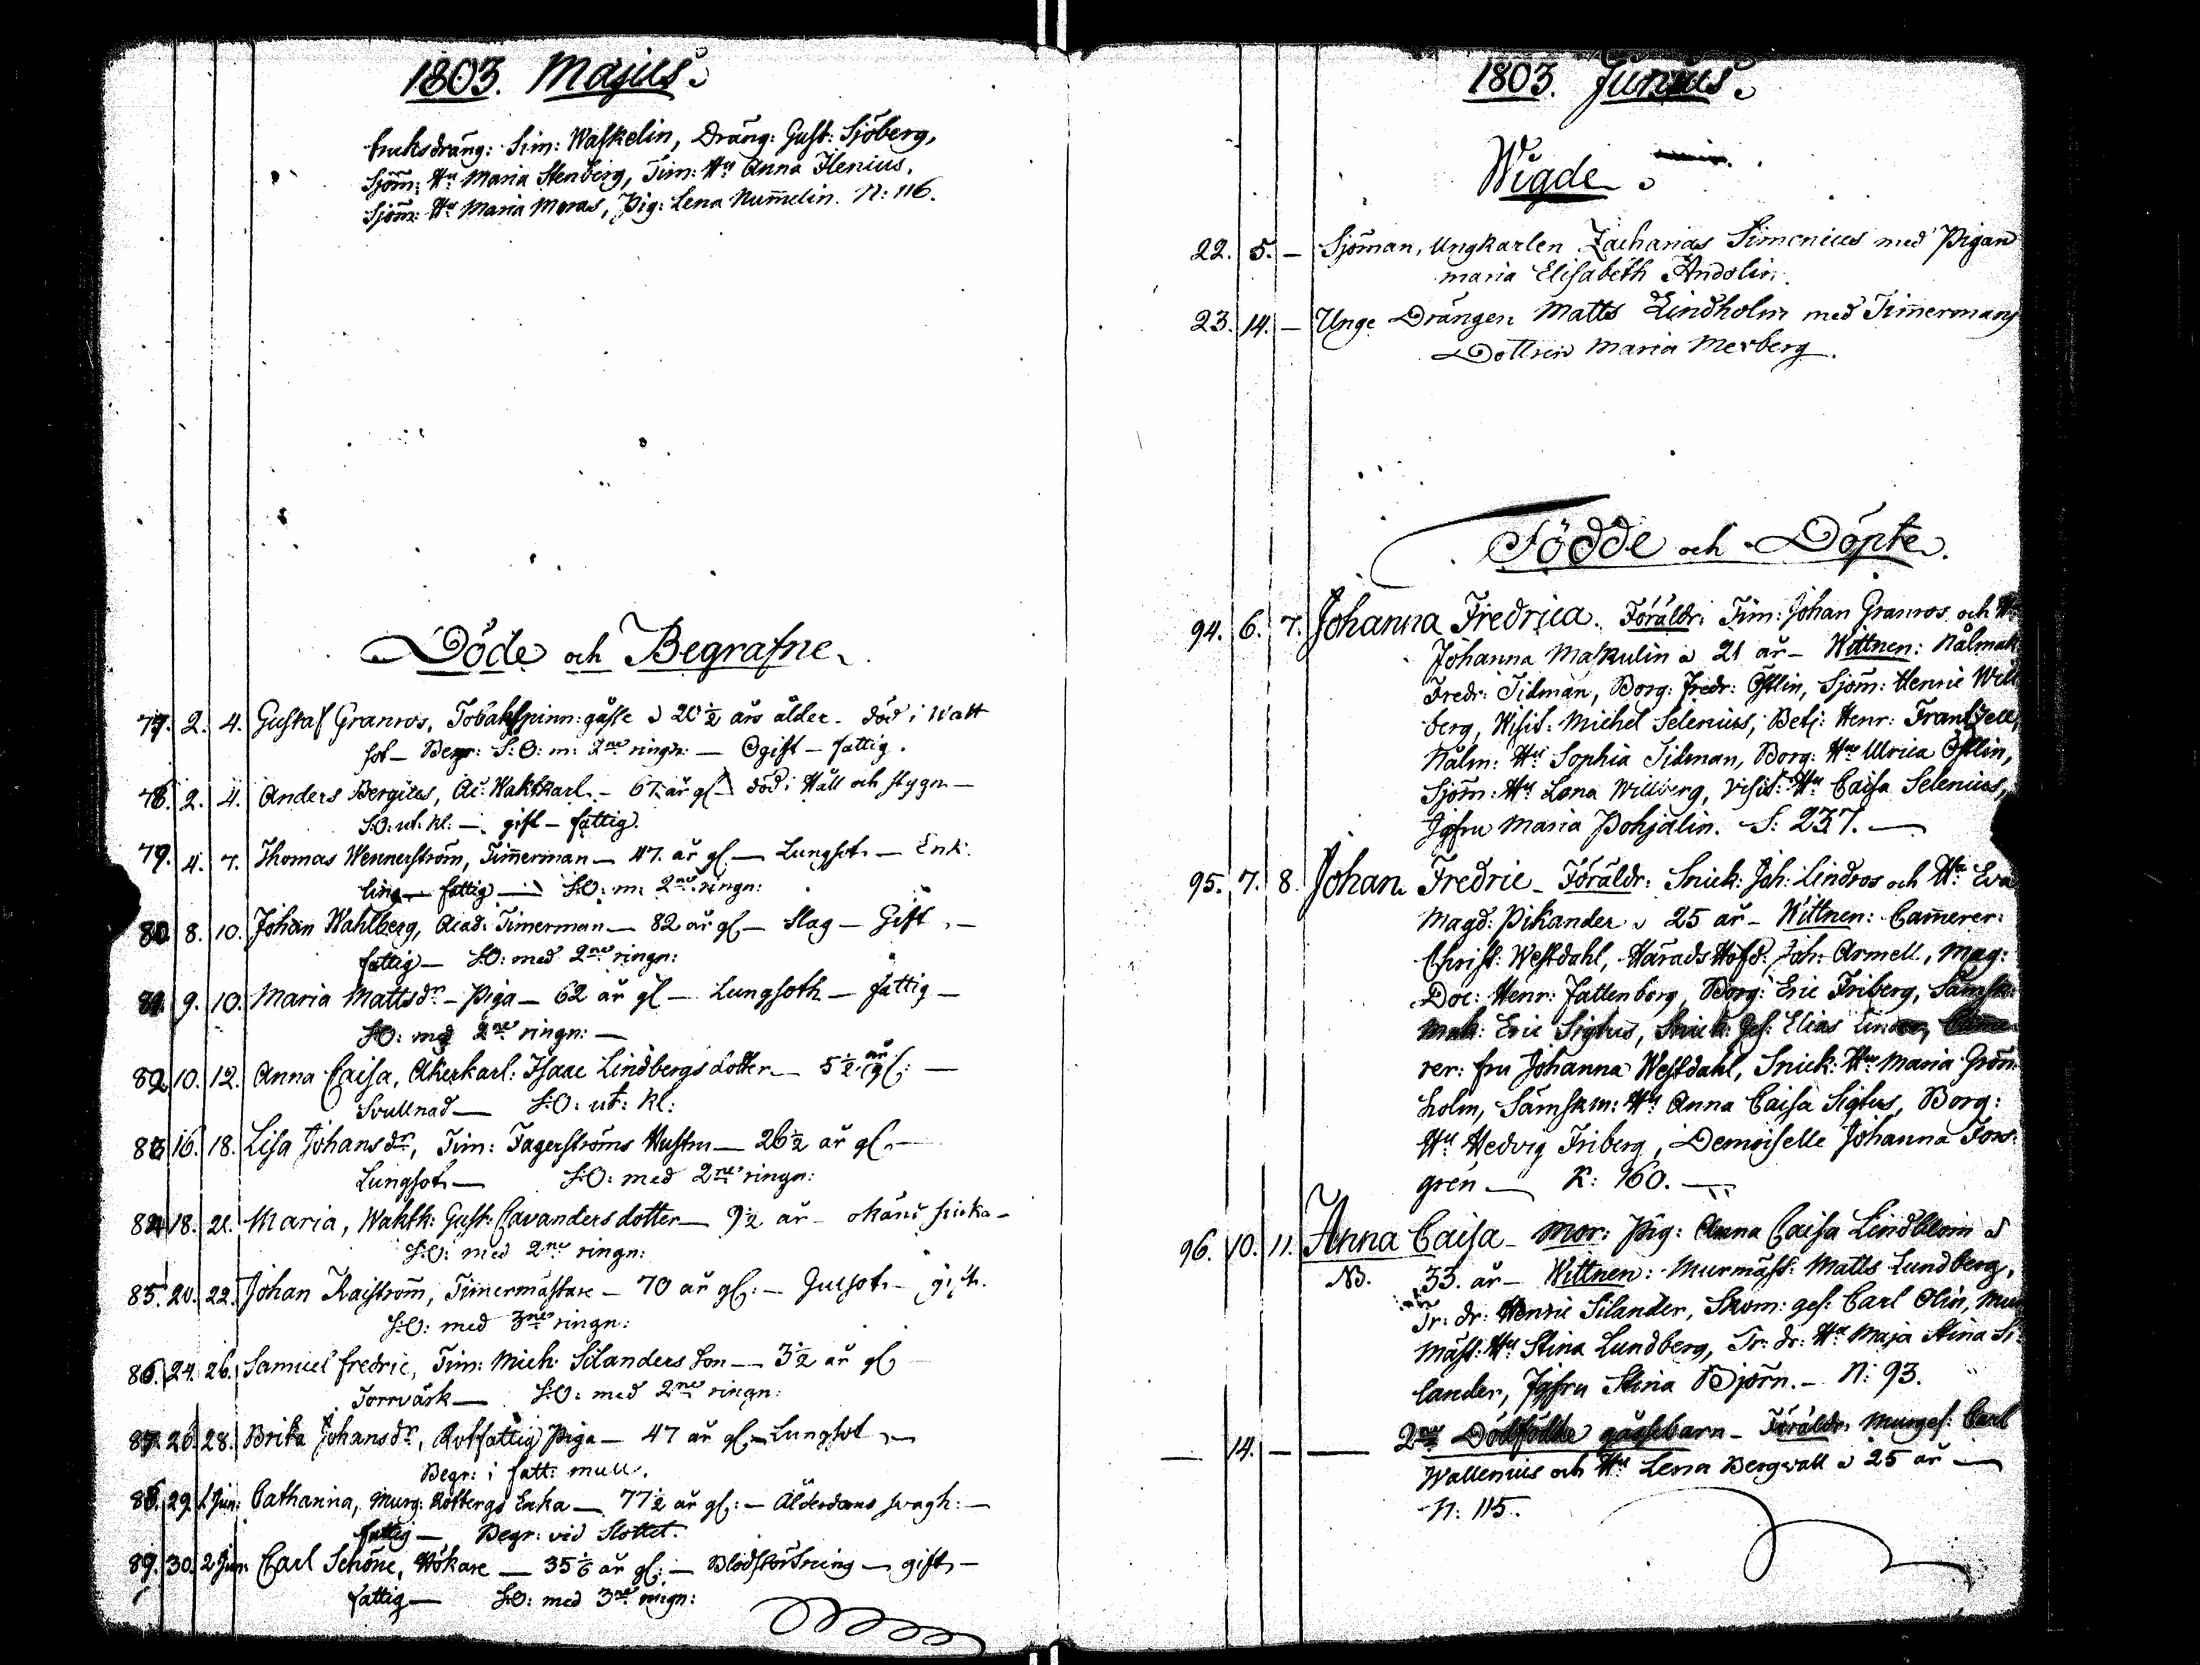 1803. Majus.
bruksdräng: Sim: Waskelin, Dräng: Gust: Sjöberg,
Sjöm: Hu Maria Stenberg, Tim: Hu Anna Ilenius,
Sjöm: Hu Maria Moras, Pig: Lena Num̄elin. N: 116.
Döde och Begrafne.
77. 2. 4. Gustaf Granros, Tobakspinn: gåsse 20 1/2 års ålder - död i Watt
sot - Begr: S:O: m: 2ne ringn: - Ogift - fattig.
78. 2. 4. Anders Bergius, Ac: Waktkarl - 67 år gl - död i Håll och stygn -
S:O: ut: kl: - gift - fattig.
79. 4. 7. Thomas Wennerström, Tim̄erman - 47. år gl. - Lungsot - Enk
ling - fattig - S:O: m: 2ne ringn:
80. 8. 10. Johan Wahlberg, Acad: Timerman - 82 år gl - Slag - Gift -
fattig - S:O: med 2ne ringn:
81. 9. 10. Maria Mattsdr - Piga - 62 år gl - Lungsoth - fattig -
S:O: med 2ne ringn: -
82 10. 12. Anna Caisa, Åkerkarl: Isaac Lindbergs dotter - 5 1/2 år gl: -
Svullnad - S:O: ut: kl:
83 16. 18. Lisa Johansdr, Tim: Fagerströms Hustru - 26 1/2 år gl. -
Lungsot - S:O: med 2ne ringn:
84 18. 21. Maria, Wakth: Gust: Cavanders dotter - 9 1/2 år - okänd siuka -
S:O: med 2ne ringn:
85. 20. 22. Johan Kaiström, Timermästare - 70 år gl: - Gulsot - gift.
S:O: med 3ne ringn:
86. 24. 26. Samuel Fredric, Tim: Mich: Silanders Son - 3 1/2 år gl
Torrvärk - S:O: med 2ne ringn:
87. 26. 28. Brita Johansdr, Rotfattig Piga - 47 år gl: - Lungsot -
Begr: i fatt: mull.
88. 29. 1 Jun: Catharina, Murg: Rotbergs Enka - 77 1/2 år gl: - Ålderdoms svagh: -
fattig - Begr: vid Slottet.
89. 30. 2 Jun: Carl Schöne, Hökare - 35 1/6 år gl: - Blodstörtning - gift -
fattig - S:O: med 3ne ringn:
1803. Junius.
Wigde.
22. 5. - Sjöman, Ungkarlen Zacharias Simenius med Pigan
Maria Elisabeth Andolin.
23. 14. - Unge Drängen Matts Lindholm med Tim̄ermans
Dottren Maria Merberg.
Födde och Döpte.
94. 6. 7. Johanna Fredrica. Föräldr: Tim: Johan Granros och H:
Johanna Maskulin 21 år - Wittnen: Nålmak
Fredr: Tidman, Borg: Fredr: Östlin, Sjöm: Henric Will
berg, Wisit: Michel Selenius, Betj: Henr: Frantzell,
Nålm: Hu Sophia Tidman, Borg: Hu Ulrica Östlin,
Sjöm: Hu Lena Willberg, Visit: Hu Caisa Selenius,
Jgfru Maria Pohjalin. S: 237. -
95. 7. 8. Johan Fredric - Föräldr: Snick: Joh: Lindros och Hu Eva
Magd: Pikander 25 år - Wittnen: Cam̄erer:
Christ: Westdahl, HäradsHöfd: Joh: Armell, Mag:
Doc: Henr: Fattenborg, Borg: Eric Friberg, Sämsk:
mak: Eric Sigtus, Snick: Ges: Elias Linder,
rer: fru Johanna Westdahl, Snick: Hu Maria Grön
holm, Sämskm: Hu Anna Caisa Sigtus, Borg:
Hu Hedvig Friberg, Demoiselle Johanna Fors
grén - K: 160. -
96. 10. 11. Anna Caisa - Mor: Pig: Anna Caisa Lindblom
NB. 33. år - Wittnen: Murmäst: Matts Lundberg,
Tr: dr: Henric Silander, Skom: ges: Carl Olin, Mur
mäst: Hu Stina Lundberg, Tr: dr: Hu Maja Stina Si
lander, Jgfru Stina Björn. - N: 93.
- 14. - - 2ne Dödfödde gåssebarn - Föräldr: Murges: Carl
Wallenius och Hu Lena Bergwall 25 år -
N: 115.